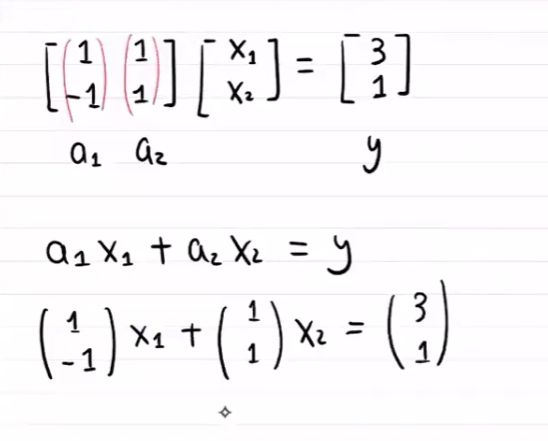 [(1 -1) (1 1)] [x₁ x₂] = [3 1]
a₁ a₂ y
a₁ x₁ + a₂ x₂ = y
(1 -1) x₁ + (1 1) x₂ = (3 1)